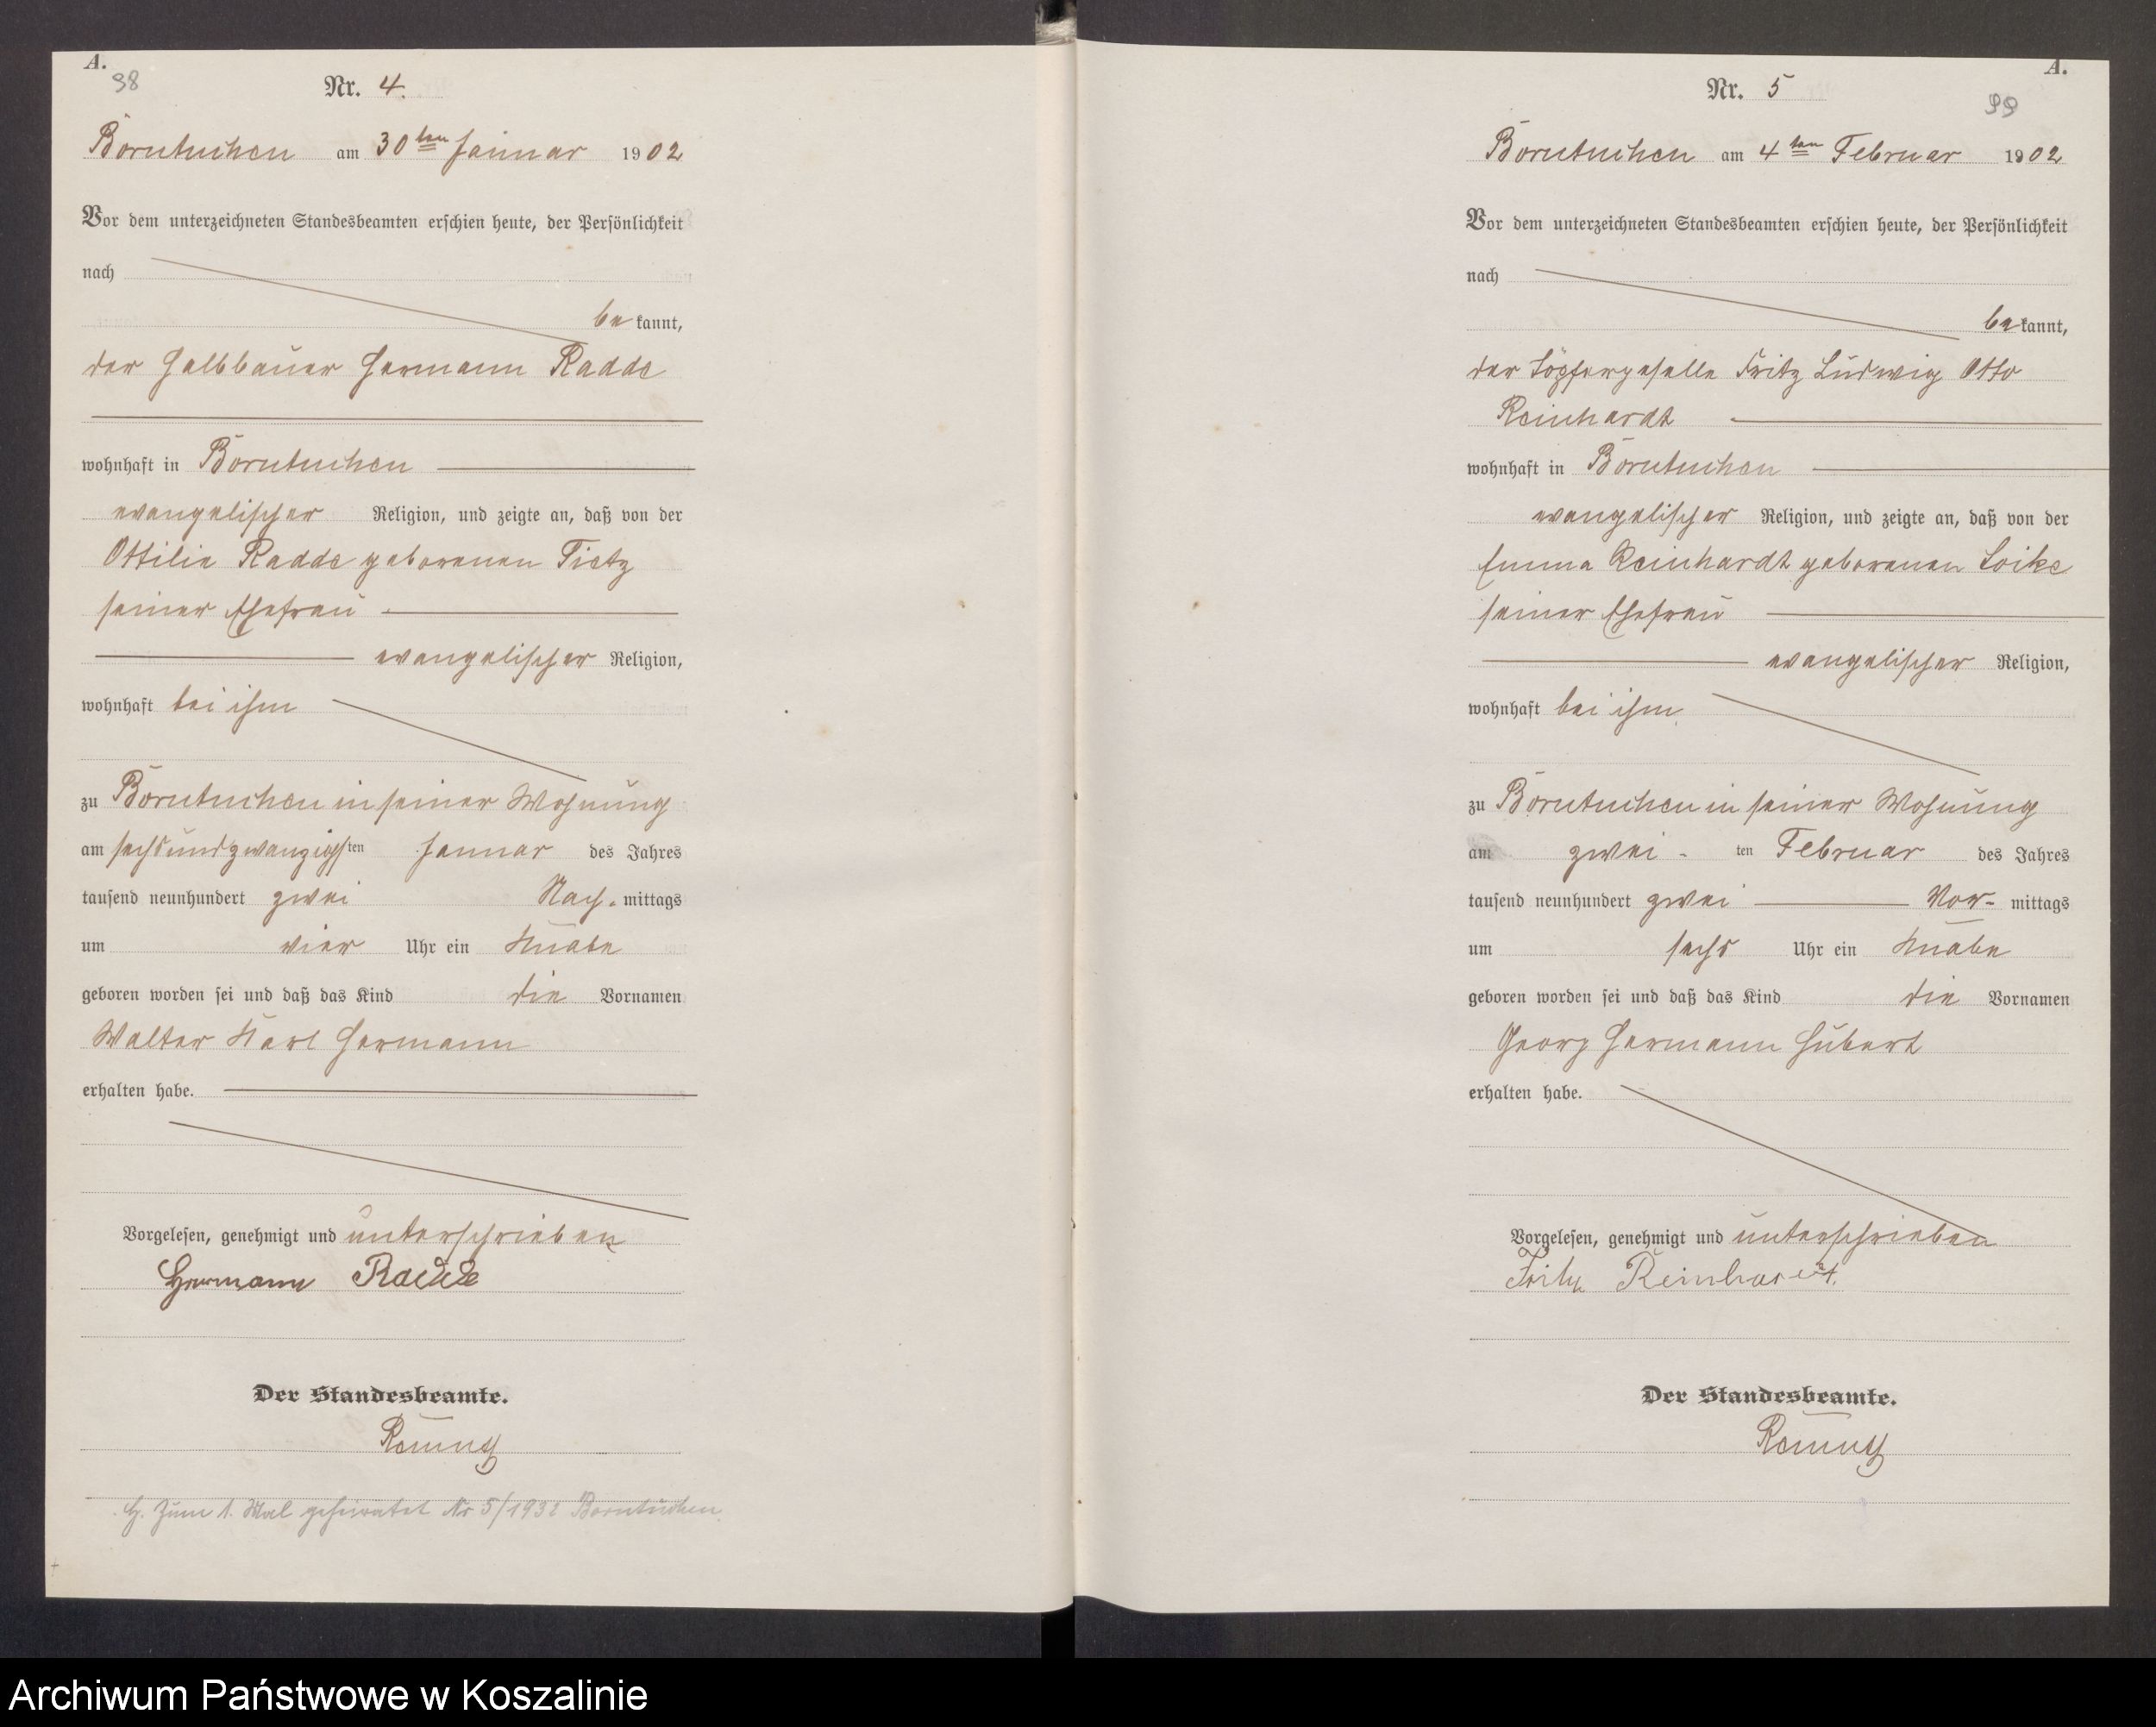 A.
38
Nr. 4.
Borntuchen am 30ten Januar 1902
Vor dem unterzeichneten Standesbeamten erschien heute, der Persönlichkeit
nach
be kannt,
der Halbbauer Hermann Radde
wohnhaft in Borntuchen
evangelischer Religion, und zeigte an, daß von der
Ottilie Radde geborenen Tietz
seiner Ehefrau
evangelischer Religion,
wohnhaft bei ihm
zu Borntuchen in seiner Wohnung
am sechsundzwanzigsten Januar des Jahres
tausend neunhundert zwei Nach- mittags
um vier Uhr ein Knabe
geboren worden sei und daß das Kind die Vornamen
Walter Karl Hermann
erhalten habe.
Vorgelesen, genehmigt und unterschrieben
Hermann Radde
Der Standesbeamte.
Zum 1. Mal geheiratet Nr 5/1932 Borntuchen
A.
99
Nr. 5
Borntuchen am 4ten Februar 1902
Vor dem unterzeichneten Standesbeamten erschien heute, der Persönlichkeit
nach
be kannt,
der Töpfergeselle Fritz Ludwig Otto
Reinhardt
wohnhaft in Borntuchen
evangelischer Religion, und zeigte an, daß von der
Emma Reinhardt geborenen Loike
seiner Ehefrau
evangelischer Religion,
wohnhaft bei ihm
zu Borntuchen in seiner Wohnung
am zwei-ten Februar des Jahres
tausend neunhundert zwei Vor- mittags
um sechs Uhr ein Knabe
geboren worden sei und daß das Kind die Vornamen
Georg Hermann Hubert
erhalten habe.
Vorgelesen, genehmigt und unterschrieben
Fritz Reinhardt.
Der Standesbeamte.
Archiwum Państwowe w Koszalinie